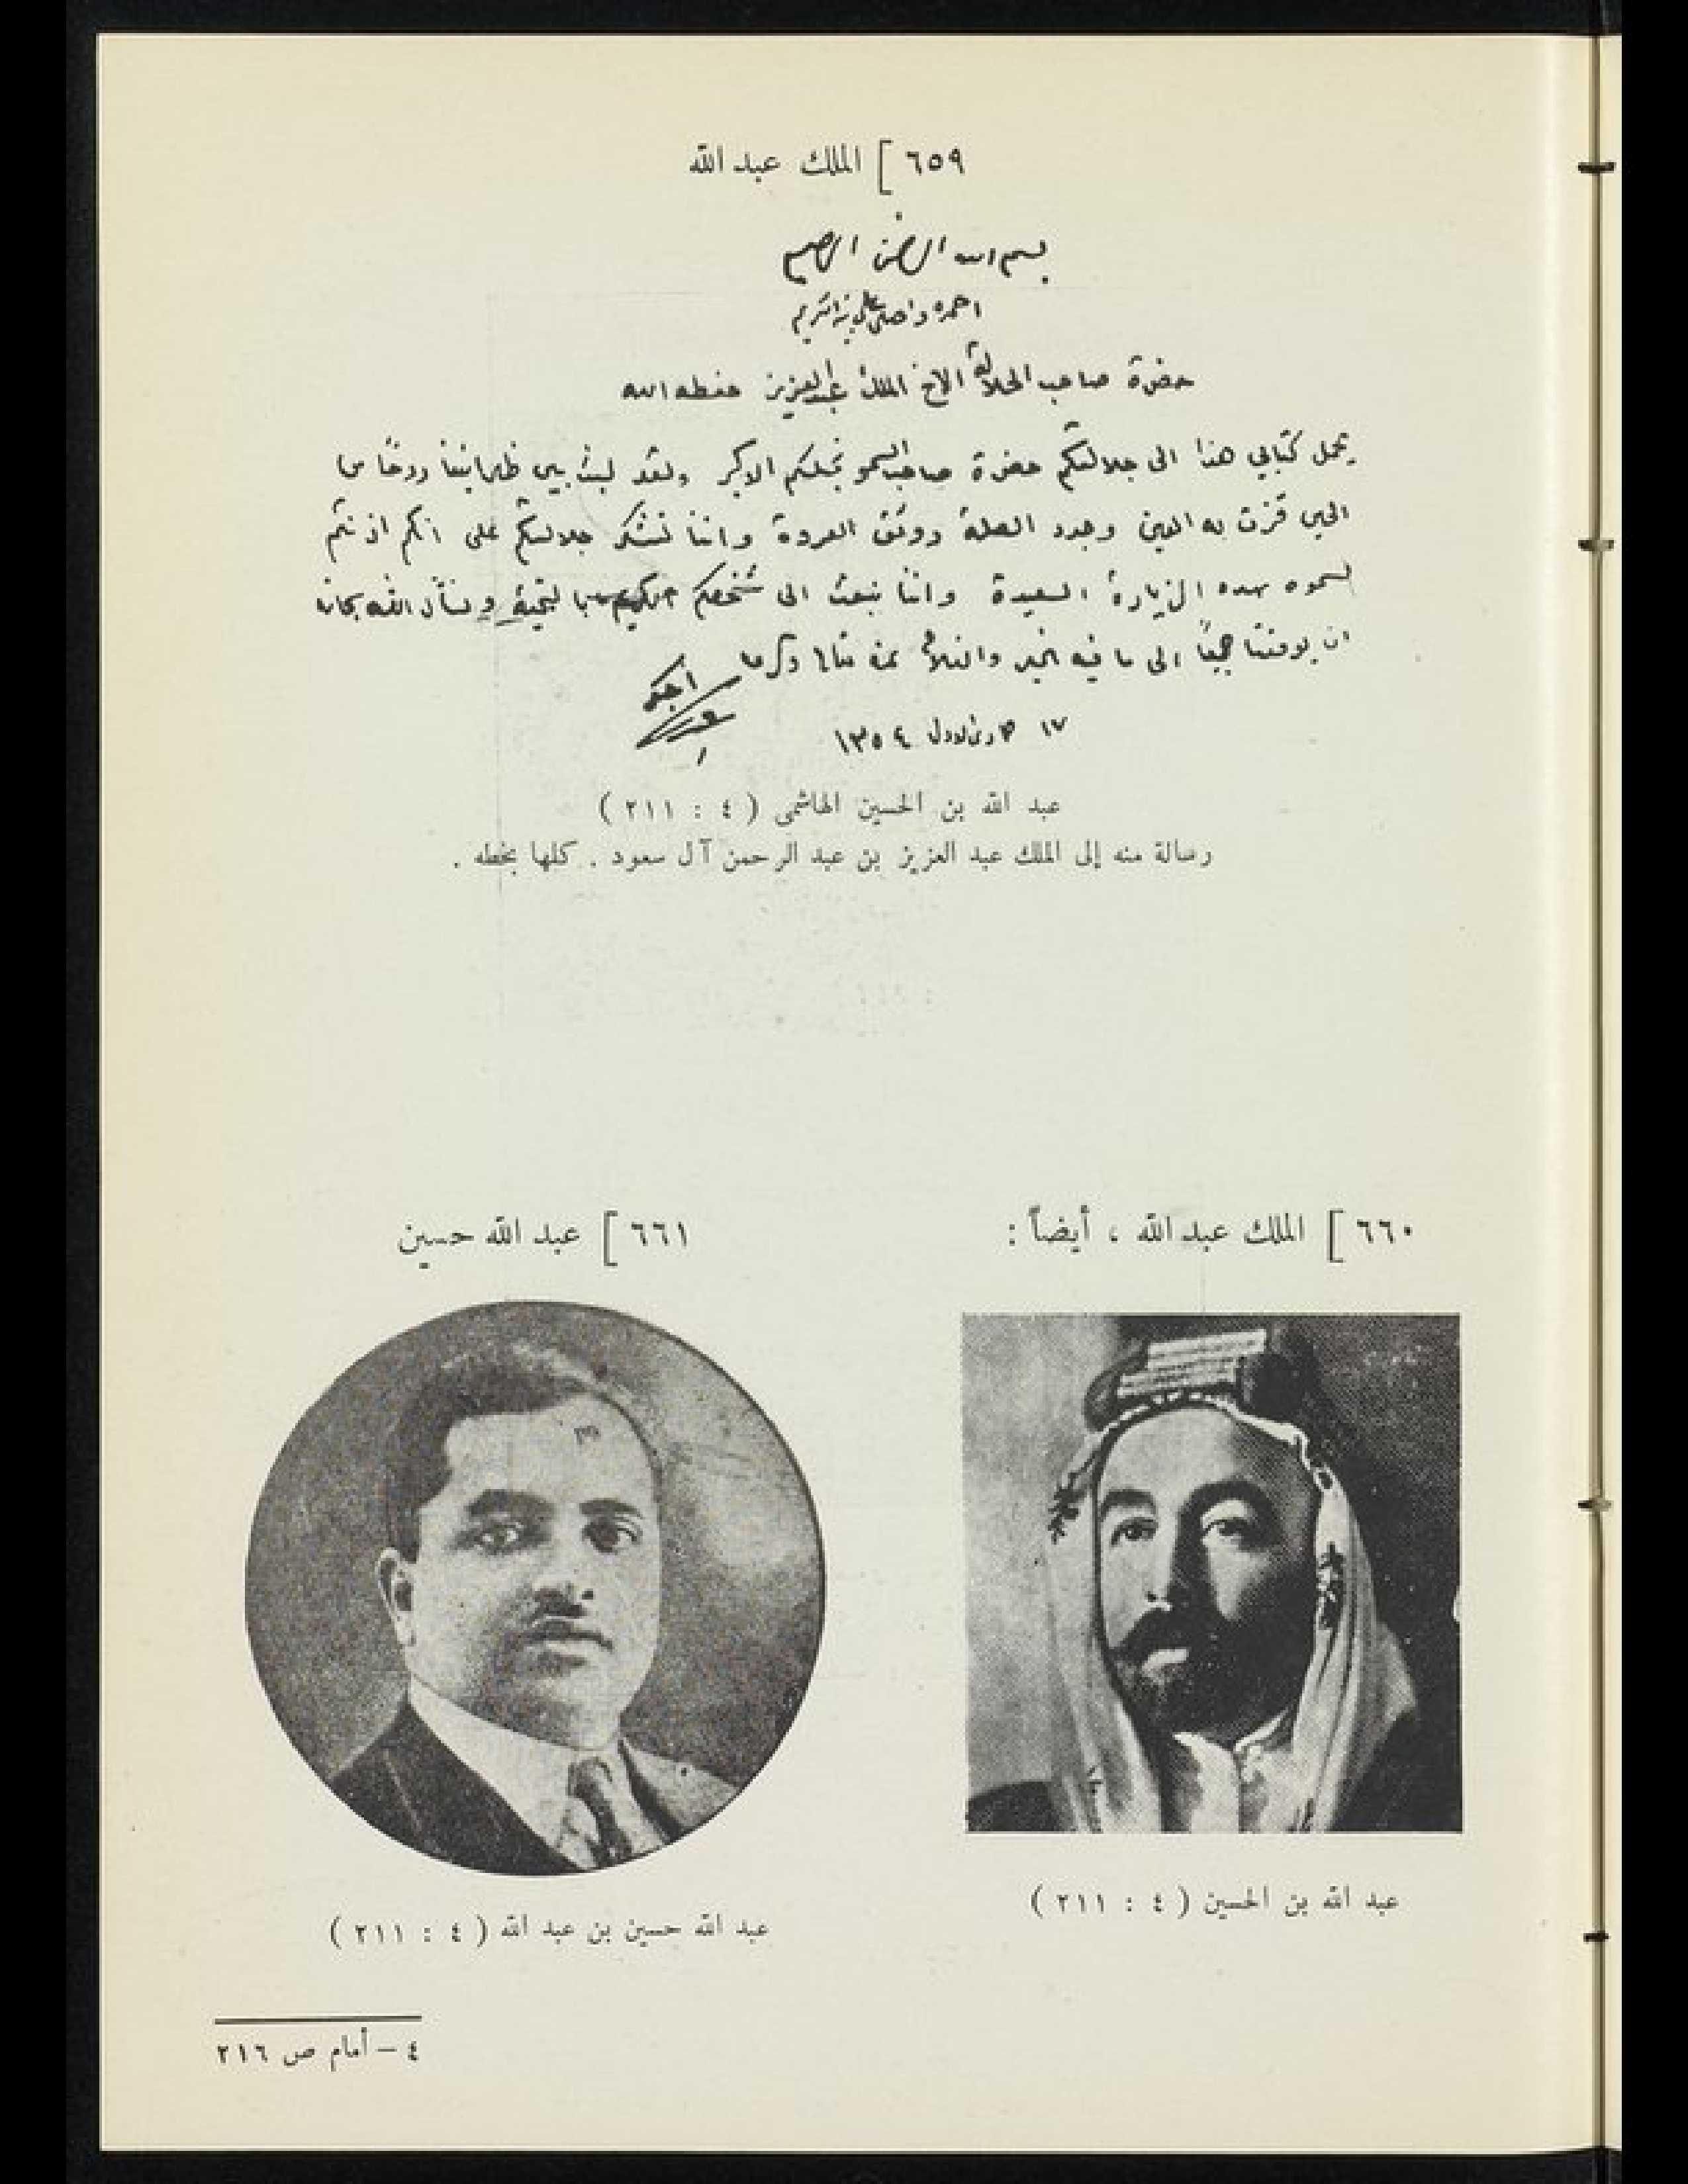 ٦٥٩ ] الملك عبد الله
بسم الله الرحمن الرحيم
احمده واصلي على نبيه الكريم
حضرة صاحب الجلالة الاخ الملك عبدالعزيز حفظه الله
يحمل كتابي هذا الى جلالتكم حضرة صاحب السمو نجلكم الاكبر ولقد لبث بين ظهرانينا ردحًا من
الحين قرت به العين وجدد الصلة ووثق العروة واننا نشكر جلالتكم على انكم اذنتم
لسموه بهذه الزيارة السعيدة واننا نبعث الى شخصكم الكريم بالتحية ونسأل الله
ان يوفقنا جميعًا الى ما فيه الخير والفلاح بمنه وكرمه
١٧ الاول ١٣٥٤
عبد الله بن الحسين الهاشمى ( ٤ : ٢١١ )
رسالة منه إلى الملك عبد العزيز بن عبد الرحمن آل سعود . كلها بخطه .
٦٦٠ ] الملك عبد الله ، أيضاً :
عبد الله بن الحسين ( ٤ : ٢١١ )
٦٦١ ] عبد الله حسين
عبد الله حسين بن عبد الله ( ٤ : ٢١١ )
٤ – أمام ص ٢١٦